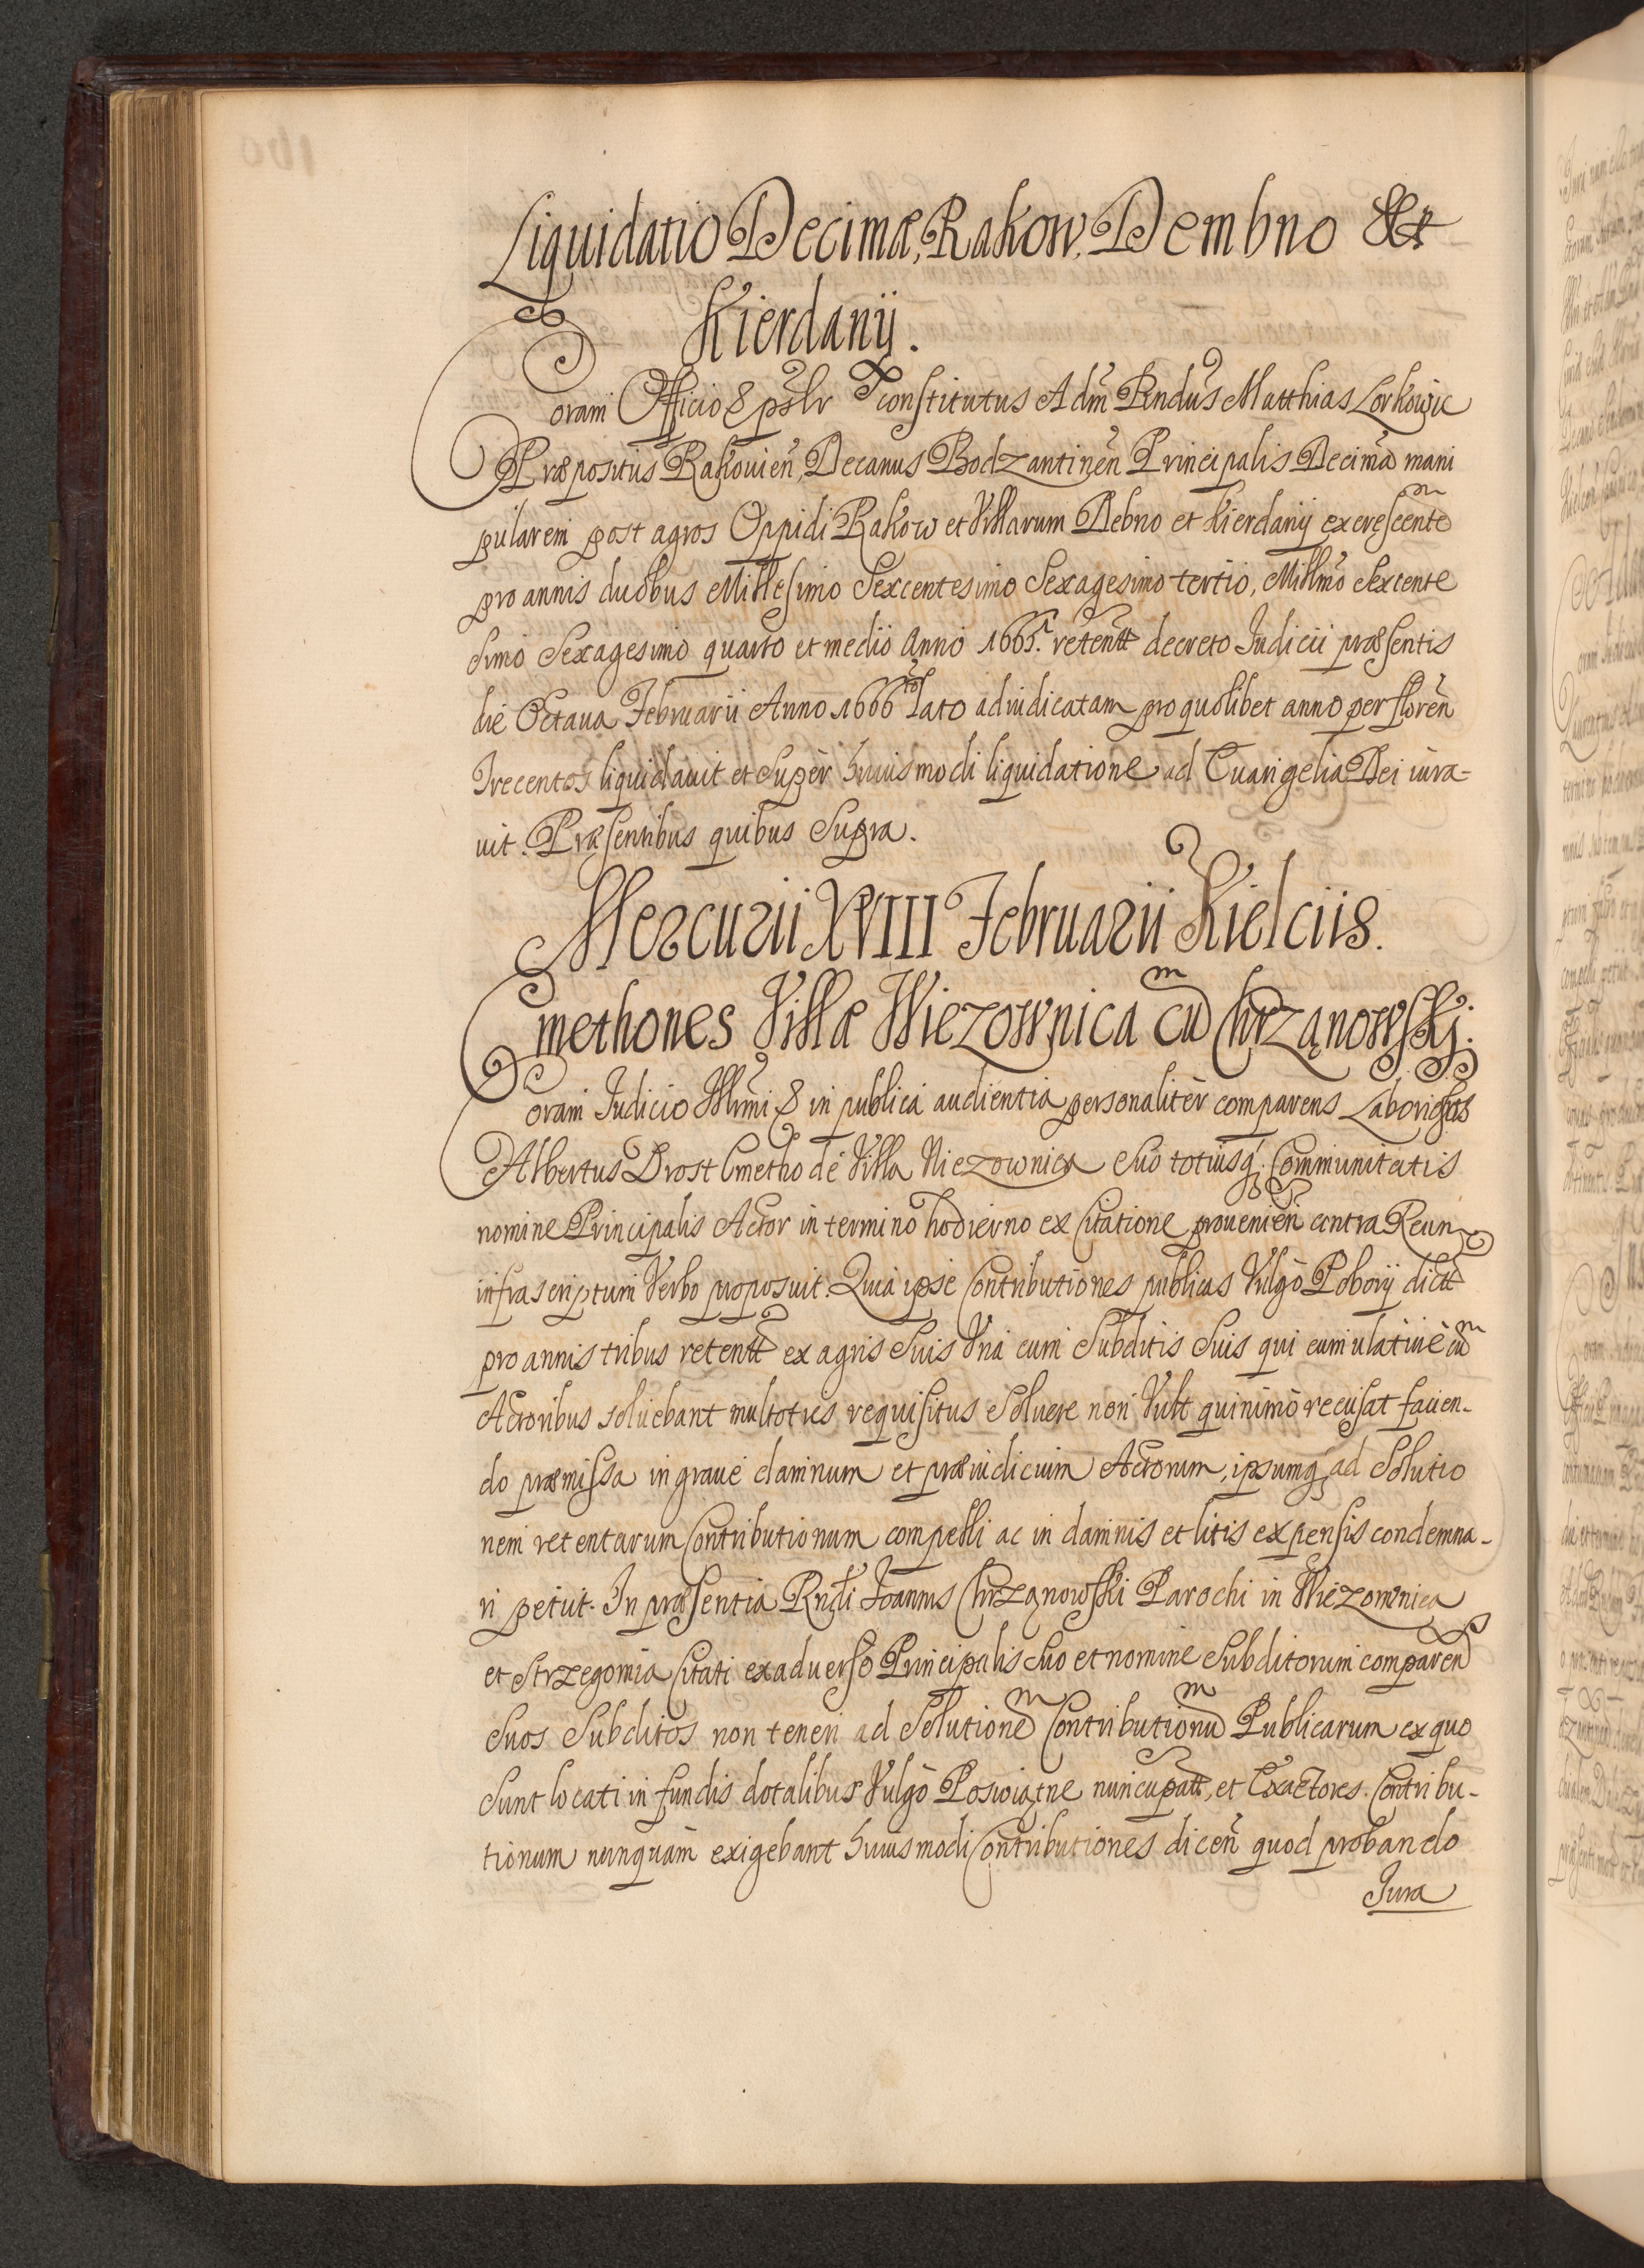 Liquidatio Decimæ, Rakow, Dembno &
Kierdanÿ.
Coram Officio & psl̃r Constitutus Adm̃ Rndũs Matthias Lorkowic
Præpositus Rakouień, Decanus Bodzantineń Principalis Decimã mani
pularem post agros Oppidi Rakow et Villarum Debno et Kierdanÿ excrescentẽ
pro annis duobus Millesimo Sexcentesimo Sexagesimo tertio, Millmo Sexcente
simo Sexagesimo quarto et medio anno 1665. retentt decreto Iudicii præsentis
die Octaua Februarii Anno 1666to lato adiudicatam pro quolibet anno per floreń
Trecentos liquidauit et Super huiusmodi liquidatione ad Euangelia Dei iura-
uit. Præsentibus quibus Supra.
Mercurii XVIII Februarii Kielciis.
Cmethones Villæ Wiezownica cũ Chrząnowskj.
Coram Iudicio Illmi & in publica audientia personaliter comparens Laboriosus
Albertus Drost Cmetho de Villa Wiezownica Suo totiusq; Communitatis
nomine Principalis Actor in termino hodierno ex Citatione prouenień contra Reum
infrascriptum Verbo proposuit. Quia ipse Contributiones publicas Vulgò Poborÿ dictt
pro annis tribus retentt ex agris Suis Vna cum Subditis Suis qui cumulatiuè cũ
Actoribus soluebant multoties requisitus Soluere non Vult quinimò recusat fauen-
do præmissa in graue damnum et præiudicium Actorum, ipsumq; ad Solutio
nem retentarum Contributionum compelli ac in damnis et litis expensis condemna-
ri petiit. In præsentia Rndi Ioannis Chrząnowski Parochi in Wiezownica
et Strzegomia Citati ex aduerso Principalis Suo et nomine Subditorum comparen
Suos Subditos non teneri ad Solutionẽ Contributionũ Publicarum ex quo
Sunt locati in fundis dotalibus Vulgò Poswiątne nuncupatt, et Exactores Contribu-
tionum nunquam exigebant huiusmodi Contributiones diceń quod probando
Iura